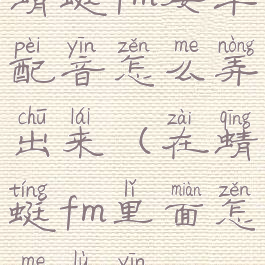 pèi yīn zěn me nòng
配音怎么弄
chū lái zài qīng
出来（在蜻
tíng lǐ miàn zěn
蜓fm里面怎
me lù yīn